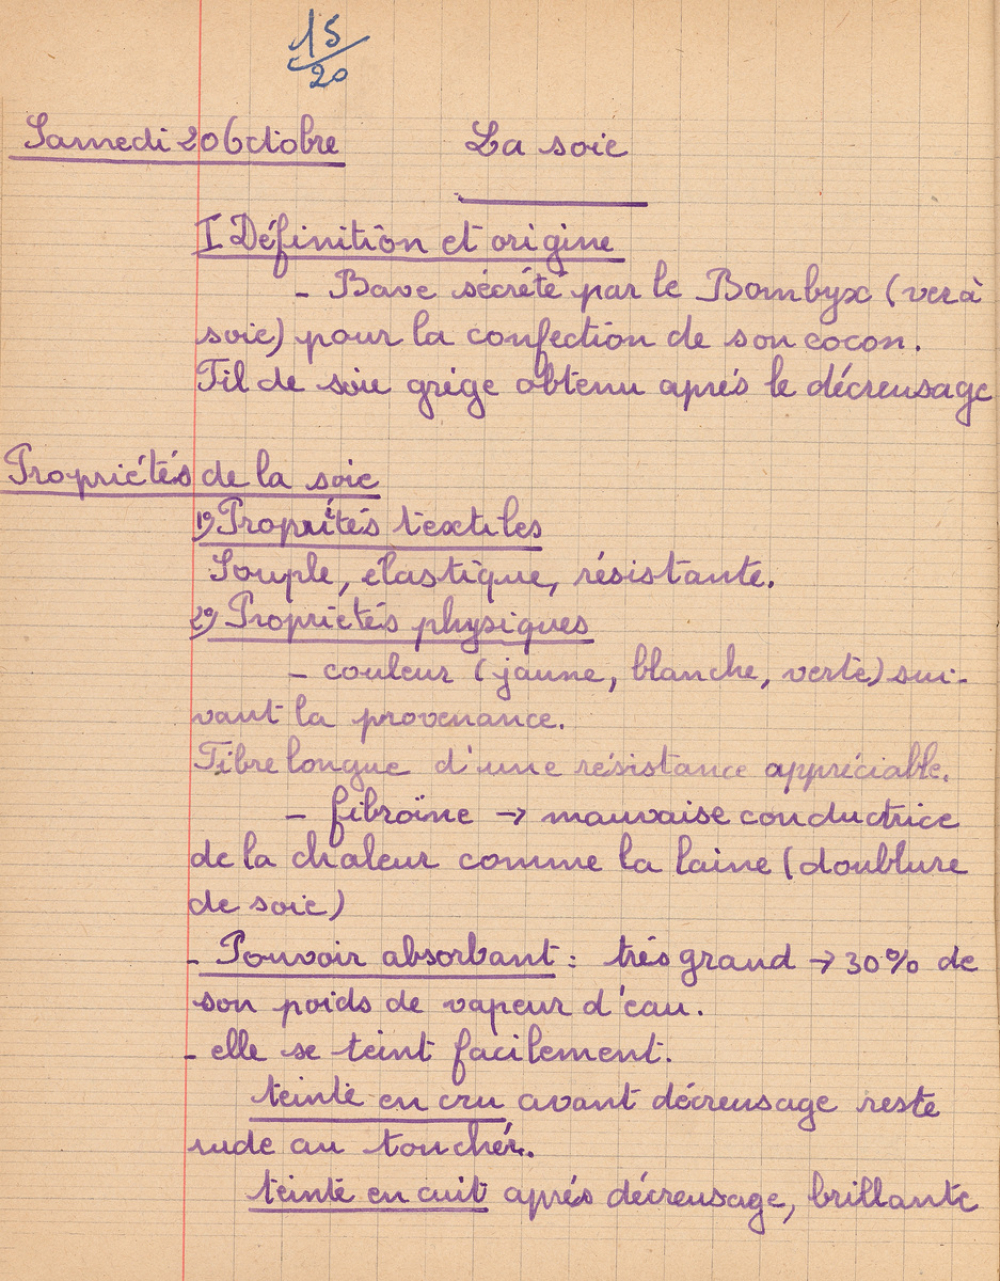 15/20
Samedi 20 Octobre La soie
I Définition et origine
- Bave sécrété par le Bombyx (ver à
soie) pour la confection de son cocon.
Fil de soie grège obtenu après le décreusage
Propriétés de la soie
1º) Propriétés textiles
Souple, élastique, résistante.
2º) Propriétés physiques
- couleur (jaune, blanche, verte) sui-
vant la provenance.
Fibre longue d'une résistance appréciable.
- fibroïne → mauvaise conductrice
de la chaleur comme la laine (doublure
de soie)
- Pouvoir absorbant : très grand → 30% de
son poids de vapeur d'eau.
- elle se teint facilement.
teinte en cru avant décreusage reste
rude au touchér.
teinte en cuit après décreusage, brillante